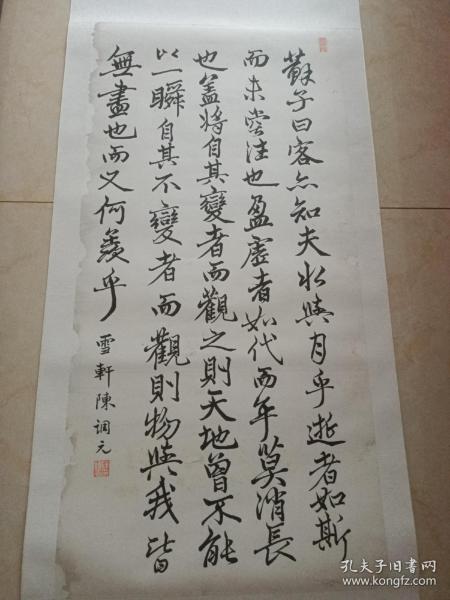 蘇子曰客亦知夫水與月乎逝者如斯
而未嘗往也盈虛者如代而卒莫消長
也蓋將自其變者而觀之則天地曾不能
以一瞬自其不變者而觀則物與我皆
無盡也而又何羨乎
雪軒陳調元
孔夫子旧书网
www.kongfz.com